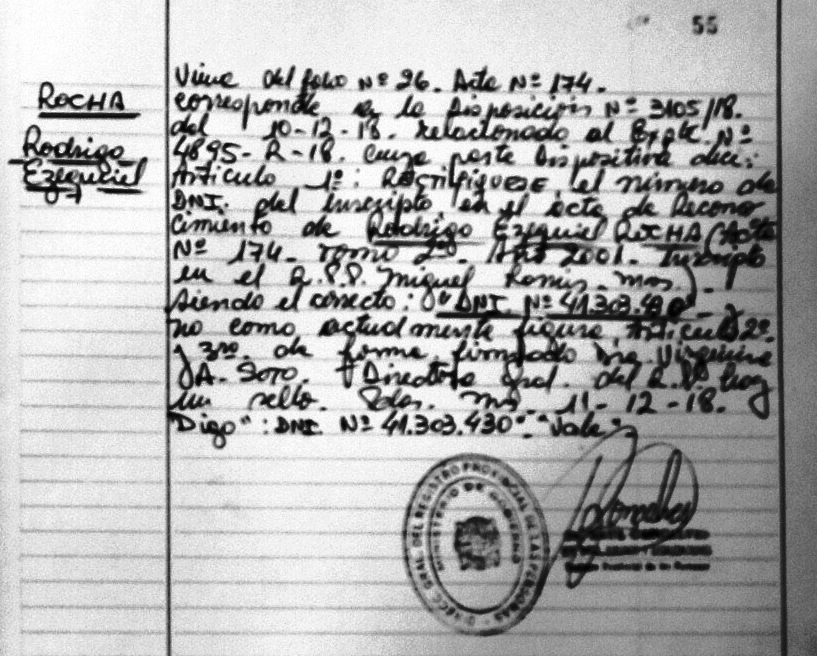 55
ROCHA
Rodrigo
Ezequiel
Viene del folio Nº 26. Acta Nº 174.
corresponde a la Disposición Nº 3105/18.
del 10-12-18. relacionado al Expte. Nº
4895-R-18. cuya parte Dispositiva dice:
Artículo 1º: RECTIFIQUESE, el número de
DNI. del inscripto en el acta de Recono
cimiento de Rodrigo Ezequiel ROCHA (Acta
Nº 174. Tomo 2º. Año 2001. Inscripto
en el R.P.P. Miguel Lanús. Mns.)
siendo el correcto: "DNI. Nº 41.303.430" y
no como actualmente figura. Artículo 2º.
y 3º. de forma. firmado
A. Soto. Directora Gral. del R.P. hay
un sello. Pdas. Mns. 11-12-18.
"Digo": DNI. Nº 41.303.430". "Vale".
DIRECC. GRAL. DEL REGISTRO PROVINCIAL DE LAS PERSONAS
MINISTERIO DE GOBIERNO